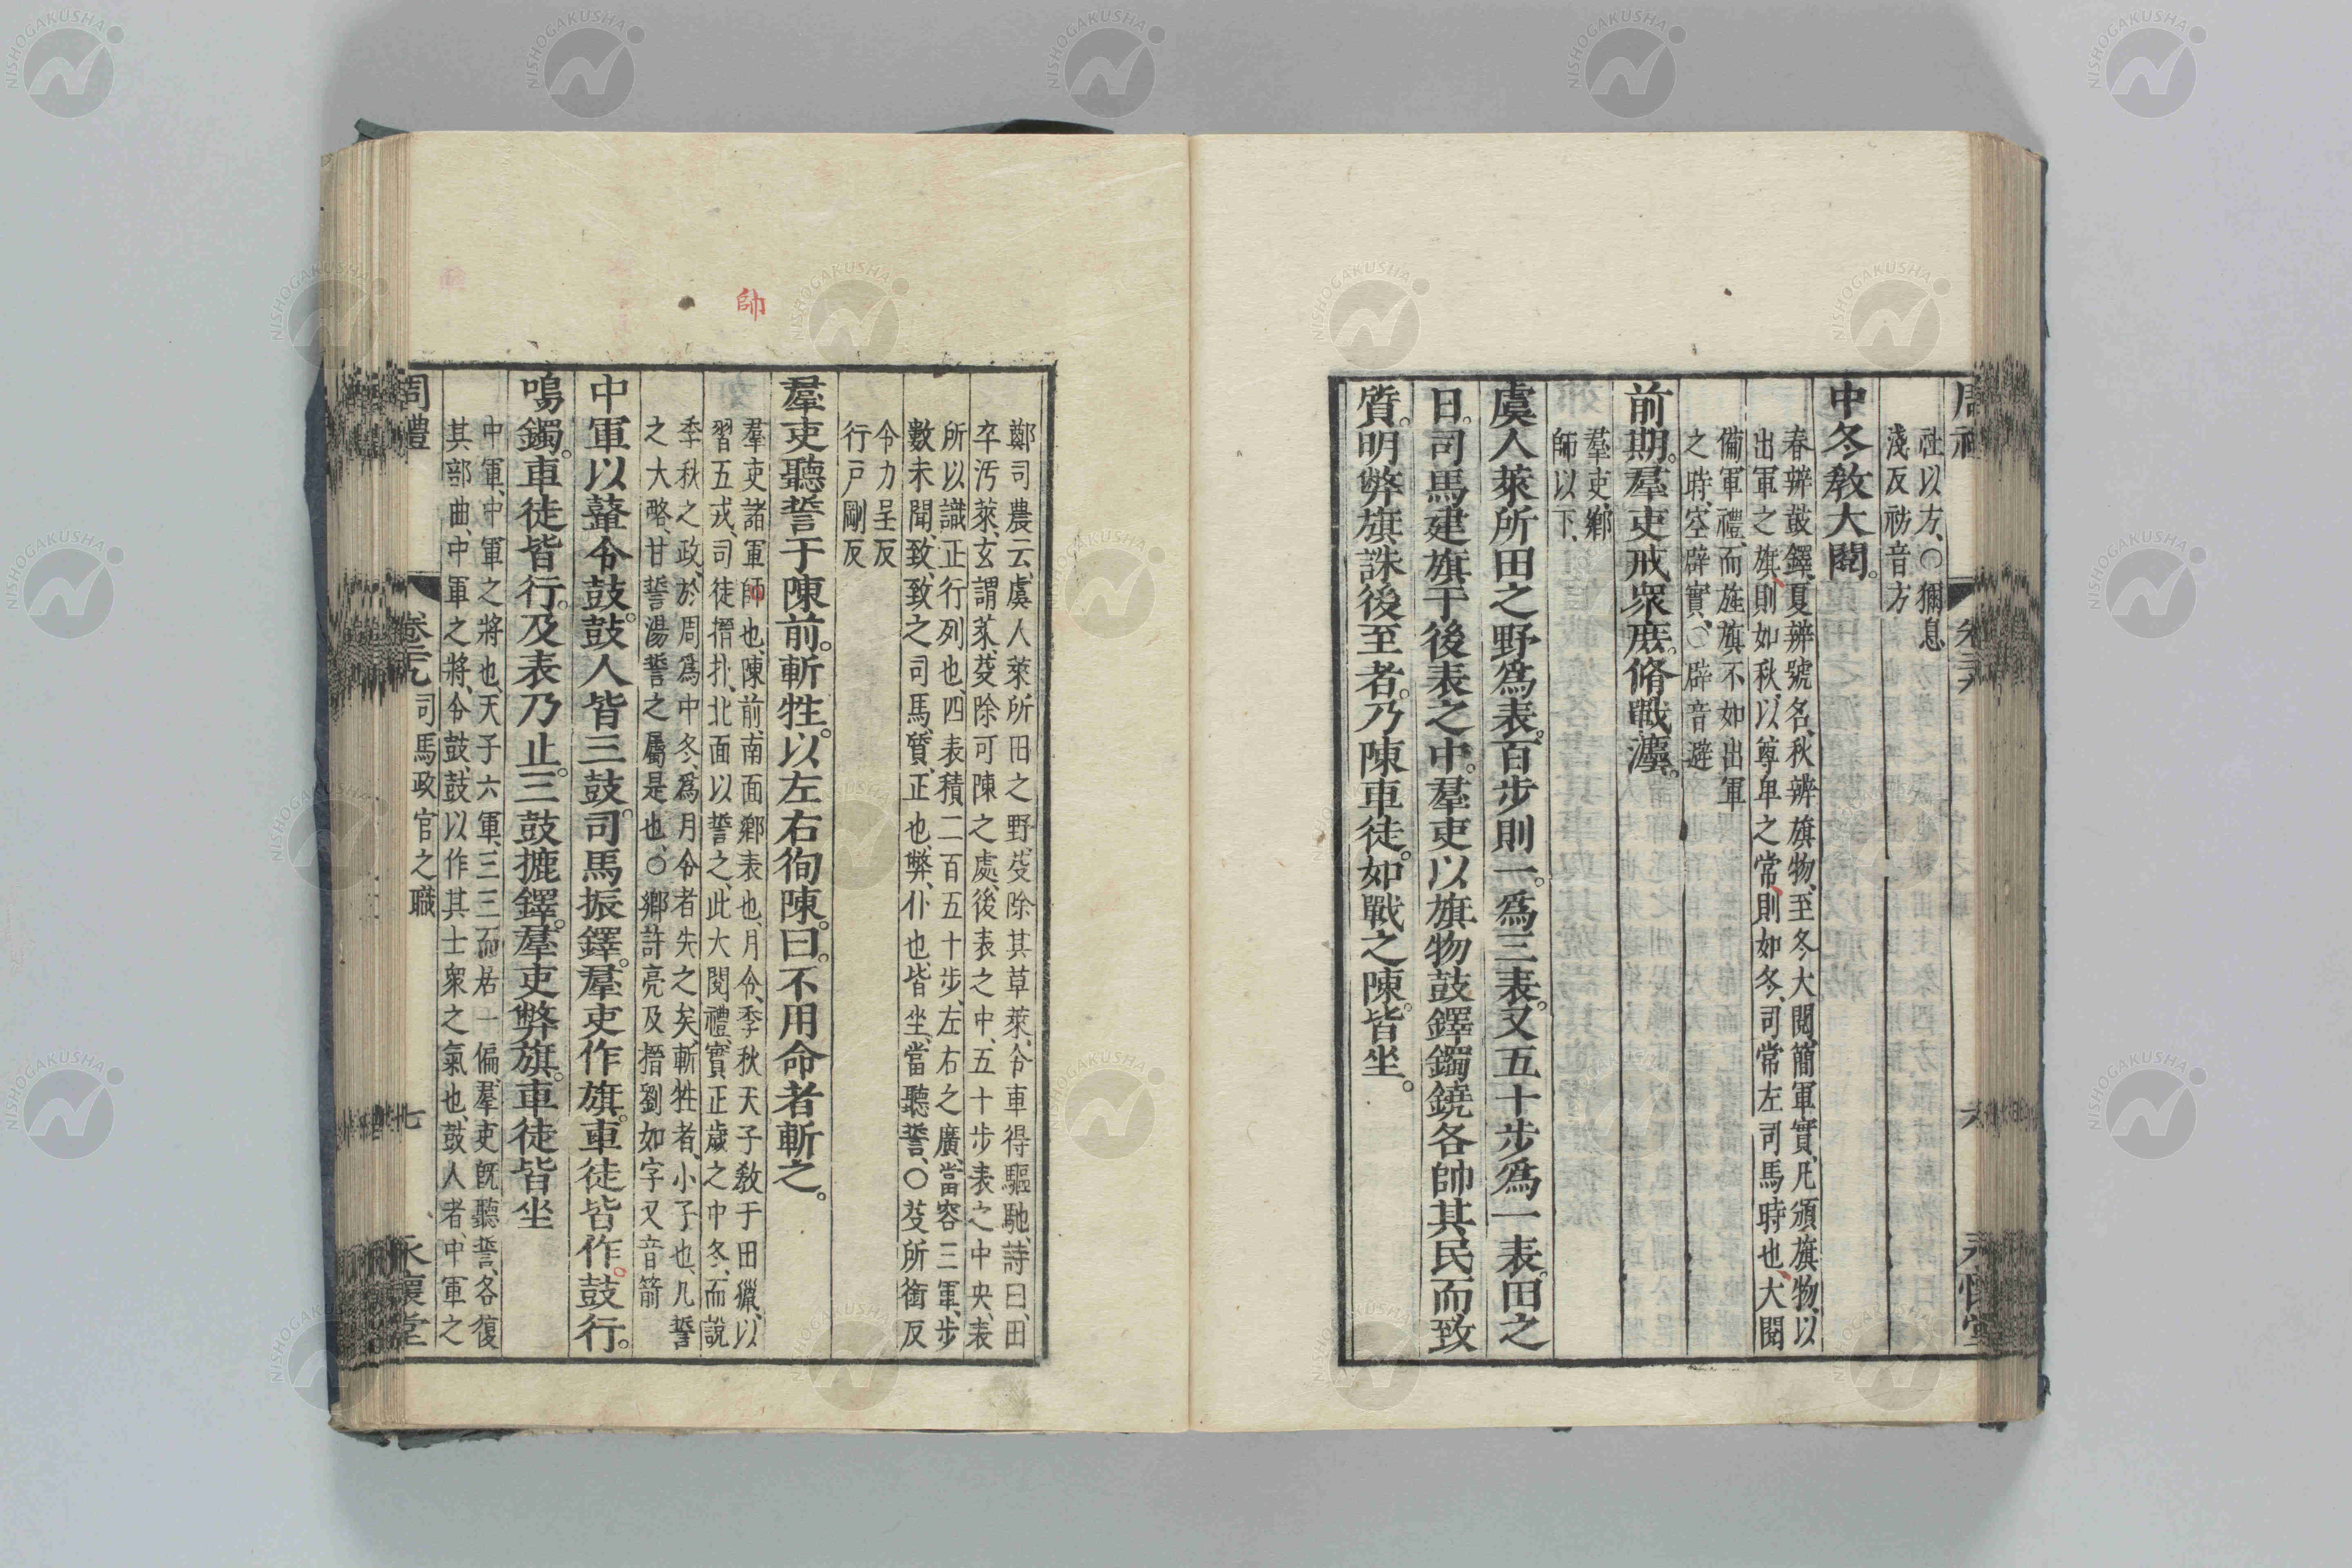 社以方、○獮息
淺反祊音方
中冬教大閱。
春辨鼓鐸、夏辨號名、秋辨旗物、至冬大閱、簡軍實、凡頒旗物、以
出軍之旗、則如秋、以尊卑之常、則如冬、司常左司馬時也、大閱
備軍禮、而旌旗不如出軍
之時、空辟實、○辟音避
前期。羣吏戒衆庶。脩戰灋。
羣吏、鄉
師以下、
虞人萊所田之野爲表。百步則一。爲三表。又五十步爲一表。田之
日。司馬建旗于後表之中。羣吏以旗物鼓鐸鐲鐃各帥其民而致
質。明弊旗、誅後至者。乃陳車徒。如戰之陳。皆坐。
六
鄭司農云、虞人萊所田之野、芟除其草萊、令車得驅馳、詩曰、田
卒汚萊、玄謂萊、芟除可陳之處、後表之中、五十步表之中央、表
所以識正行列也、四表積二百五十步、左右之廣、當容三軍、步
數未聞、致、致之司馬、質、正也、弊、仆也、皆坐、當聽誓、○芟所銜反
令力呈反
行戸剛反
帥
羣吏聽誓于陳前。斬牲。以左右徇陳。曰。不用命者斬之。
羣吏諸軍師也、陳前、南面鄉表也、月令、季秋天子教于田獵、以
習五戎、司徒搢扑、北面以誓之、此大閱禮、實正歲之中冬、而說
季秋之政、於周爲中冬、爲月令者失之矣、斬牲者、小子也、凡誓
之大略、甘誓湯誓之屬是也、○鄉許亮反搢劉如字又音箭
中軍以鼙令鼓。鼓人皆三鼓。司馬振鐸。羣吏作旗。車徒皆作。鼓行。
鳴鐲。車徒皆行。及表乃止。三鼓摝鐸。羣吏弊旗。車徒皆坐
中軍、中軍之將也、天子六軍、三三而居一偏、羣吏既聽誓、各復
其部曲、中軍之將、令鼓、鼓以作其士衆之氣也、鼓人者、中軍之
周禮 卷二十九 司馬政官之職 七 永懷堂